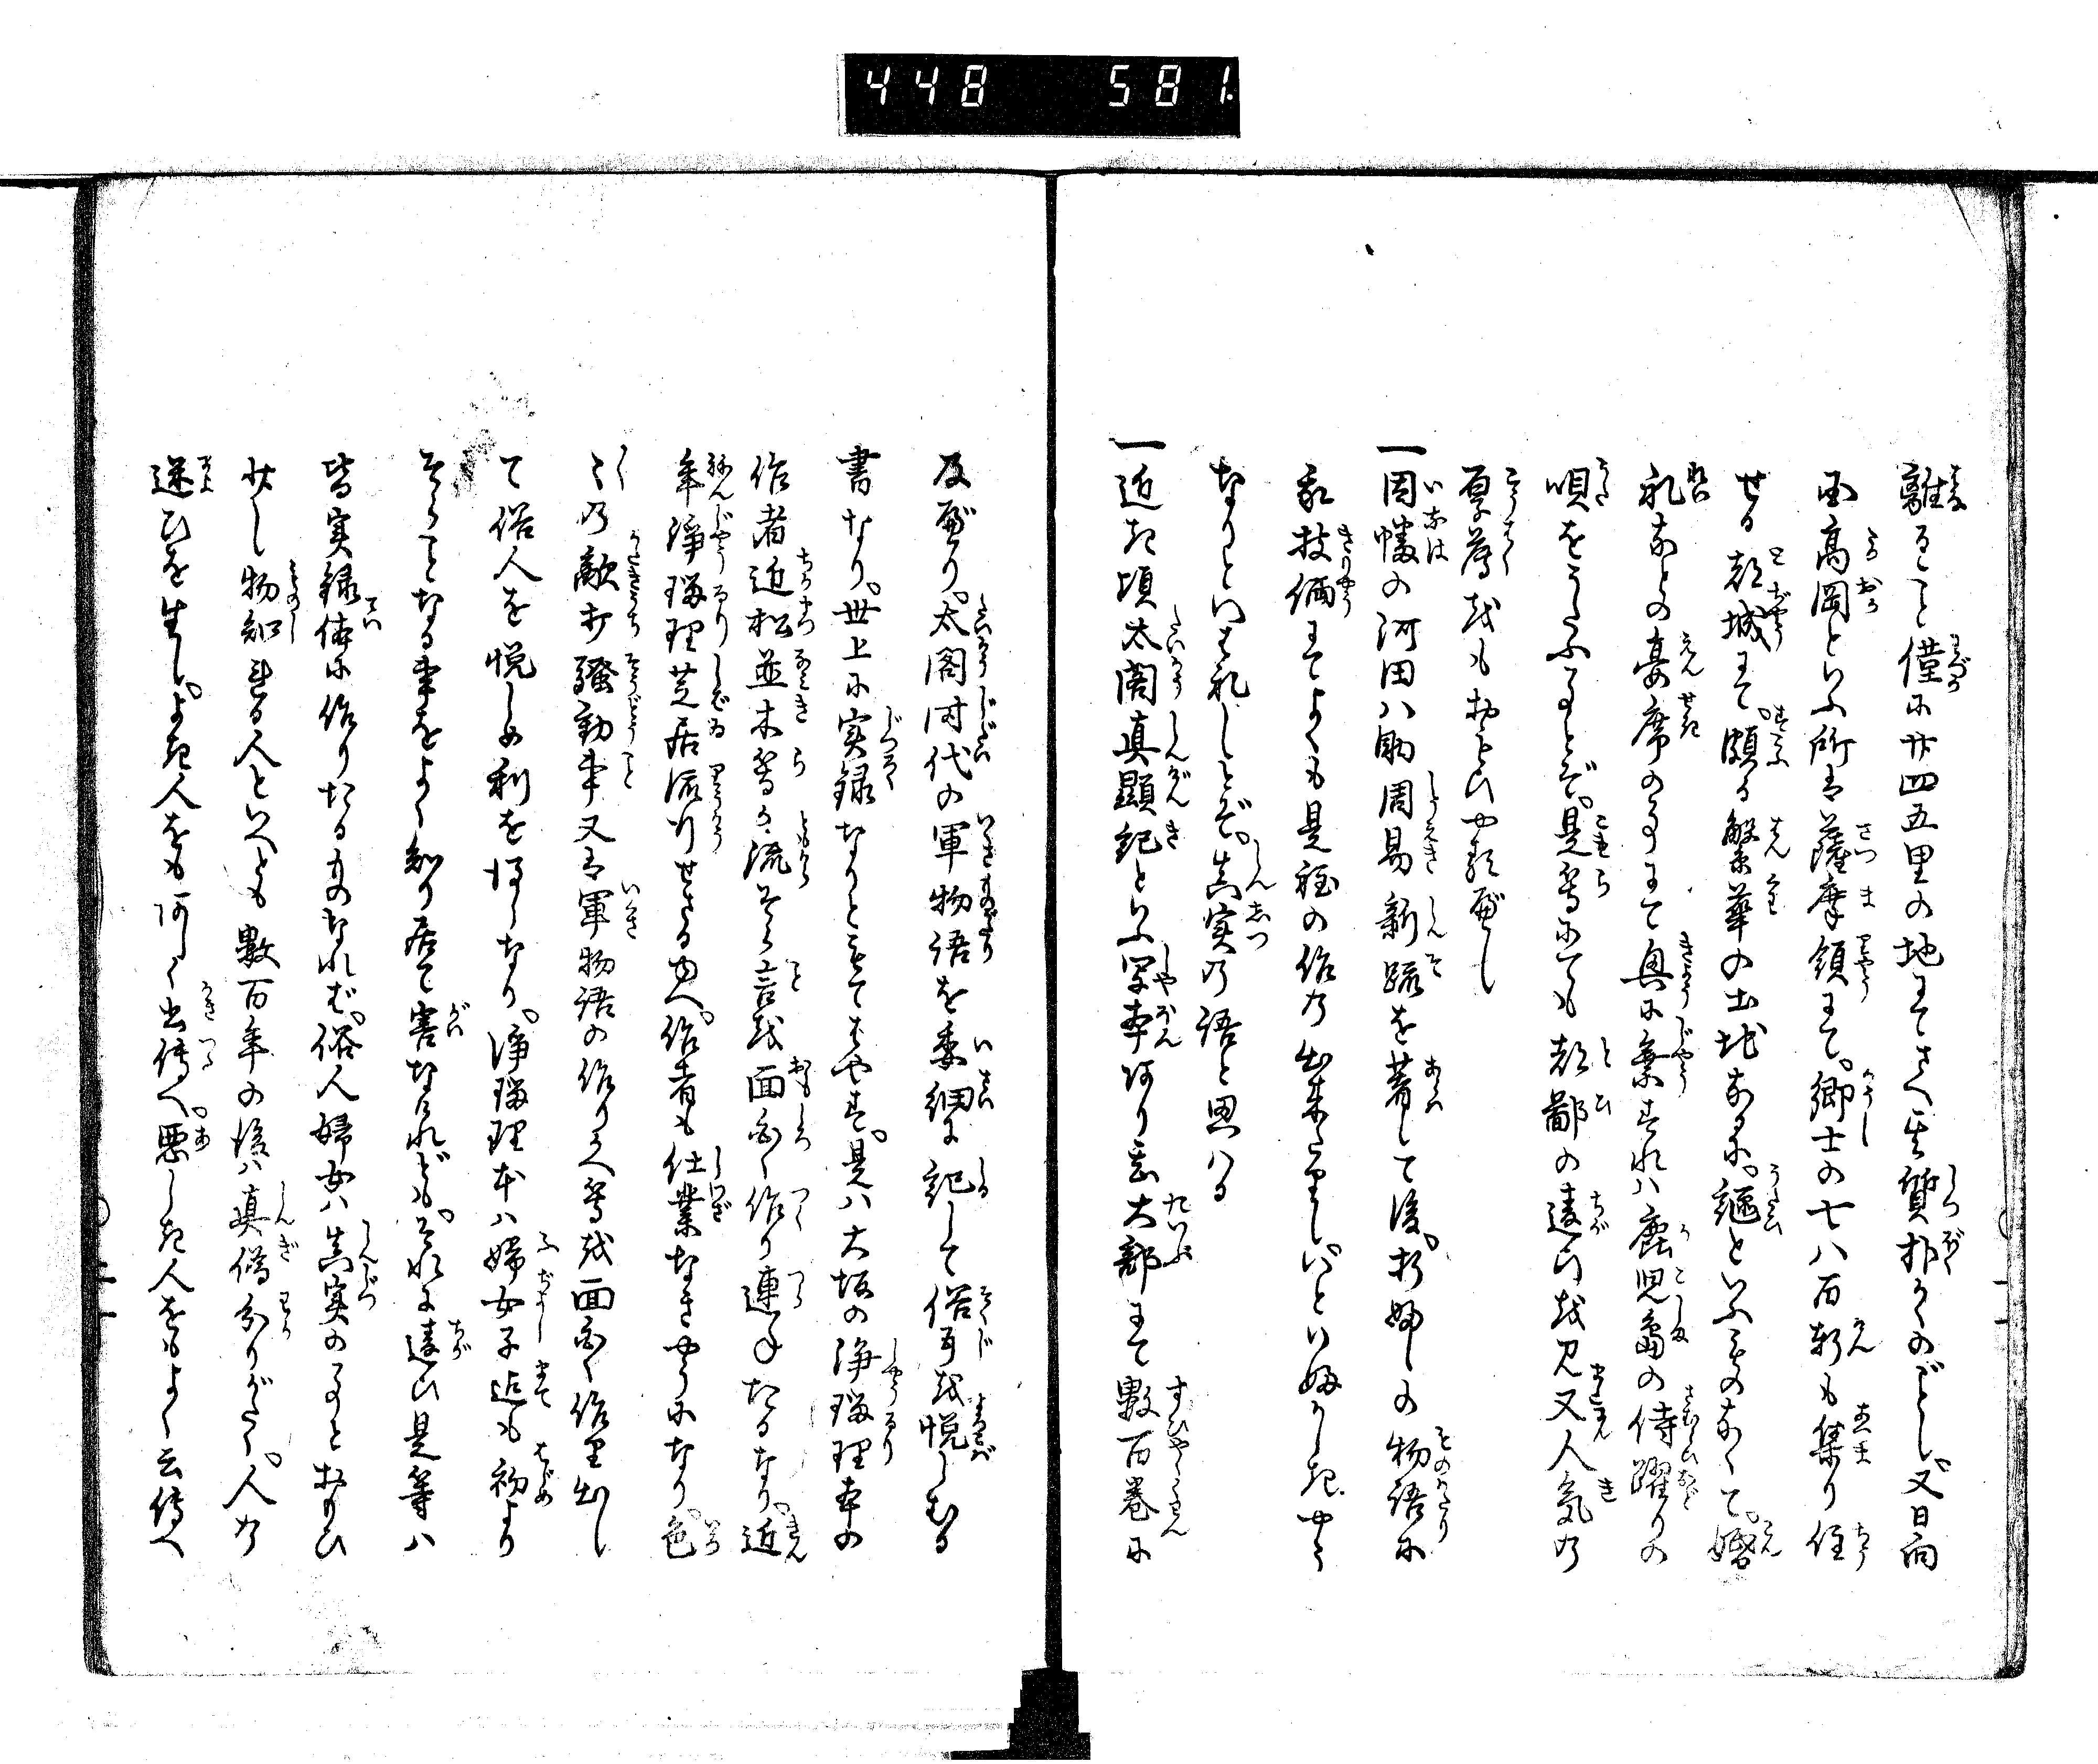 448 581.
離るゝこと僅に廿四五里の地にてさへ其質朴かくのごとし。又日向
国高岡といふ所は薩摩領にて。郷士の七八百軒も集り住
せる都城にて。頗る繁華の土地なるに。謡といふものなくて。婚
礼などの宴席の事にて興に乗ずれハ鹿児島の侍踊りの
唄をうたふ事とぞ。是等にても都鄙の違ひを見又人気の
厚薄をもおもひやるべし
一因幡の河田八助周易新疏を著して後。折婦しの物語に
我技倆にてよくも是程の作の出来たりし。といひがたきやう
なりといはれしとぞ。真実の語と思ハる
一近き頃太閤真顕記といふ写本あり其大部にて数百巻に
及べり。太閤時代の軍物語を委細に記して俗耳を悦しむる
書なり。世上に実録なりとてもてはやす。是ハ大坂の浄瑠理本の
作者近松並木等が流そら言を面白く作り連ねたるなり。近
年浄瑠理芝居流行せざるゆへ。作者も仕業なきやうになり。色
〻の敵打騒動事又は軍物語の作りかへ等を面白く作り出し
て俗人を悦しめ利を得るなり。浄瑠理本ハ婦女子迄も初より
そらことなる事をよく知り居て害なけれども。それに違ひ是等ハ
皆実録体に作りたるものなれば。俗人婦女ハ真実の事とおもひ
せし物知れる人といへども数百年の後ハ真偽分りがたく。人の
迷ひを生し。よき人をもあしく書伝へ。悪しき人をもよく云伝へ